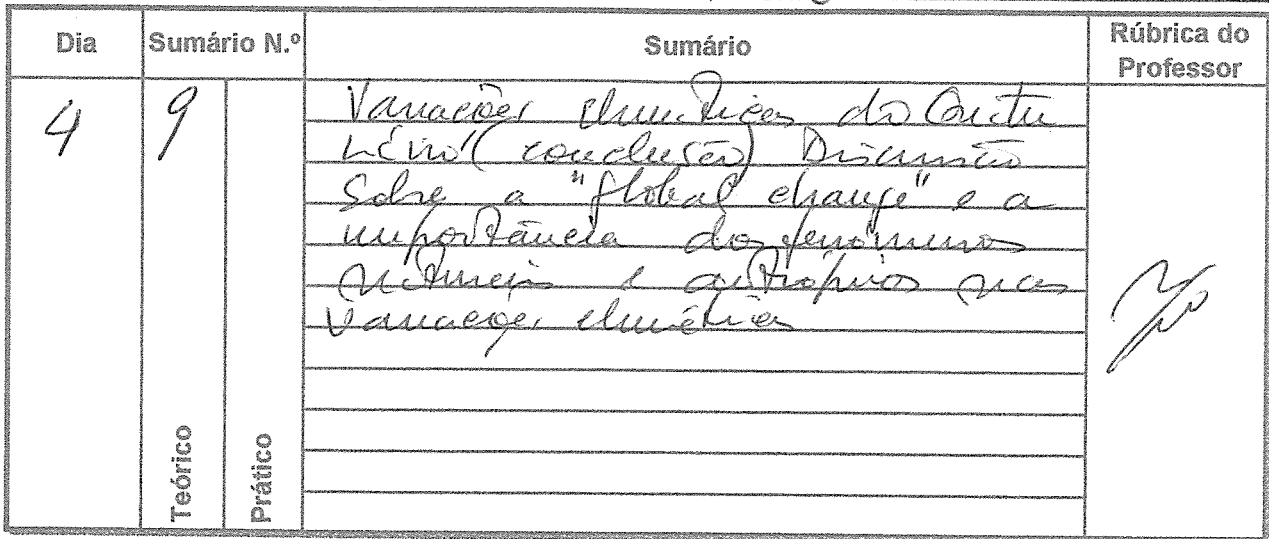 Dia Sumário N.º Sumário Rúbrica do Professor
4 9
Variações climáticas do Quater
nário (conclusão) Discussão
sobre a "global change" e a
importância dos fenómenos
naturais e antrópicos nas
Variações climáticas
Teórico
Prático